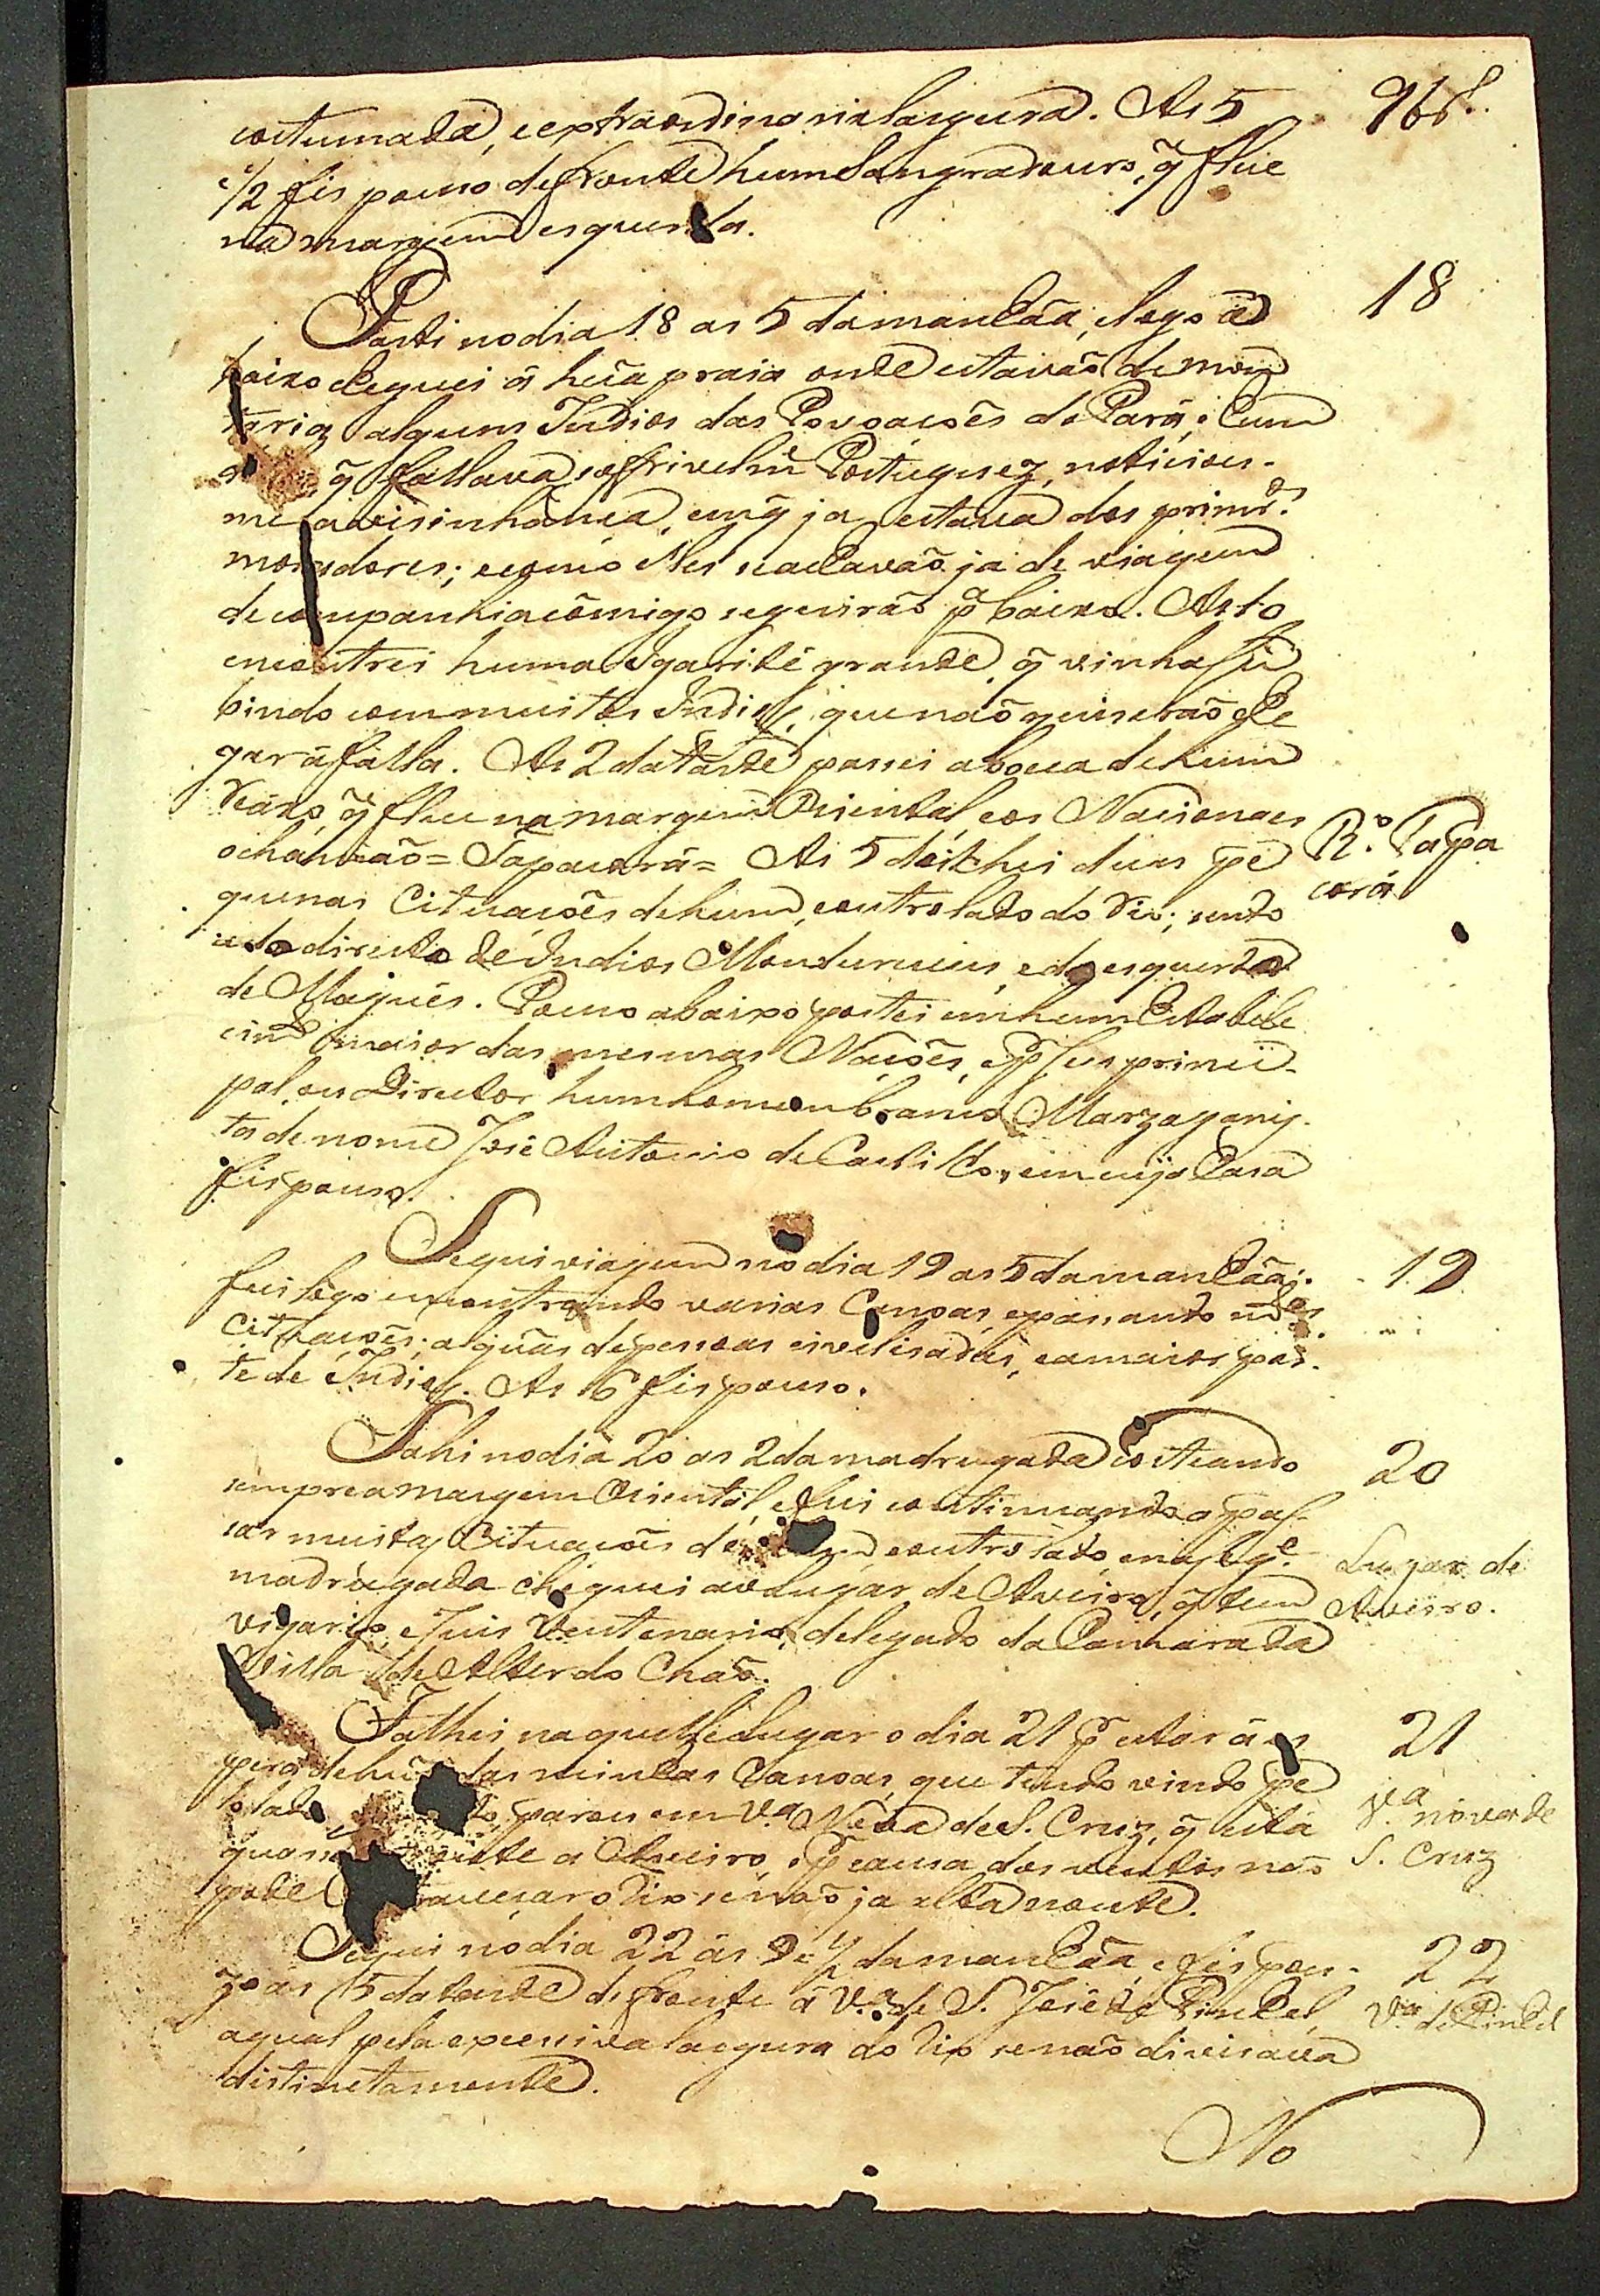 costumada, e extraordinaria largura. As 5
e 1/2 fis pouso defronte hum Sangradouro, q̃ flue
na margem esquerda.
18
Parti no dia 18 as 5 da manhãa, e logo a
baixo cheguei á hũa praia onde estavão de mon
taria alguns Indios das Povoaçoẽs do Pará; e hum
q̃ fallava soffrivelm̃ Portuguez, noticiou-
me a visinhança, em q̃ ja estava dos primros
moradores; e como elles se achavão ja de viagem
de companhia cõmigo seguirão p̃ baixo. As 10
encontrei huma Igarité grande, q̃ vinha su
bindo com muitos Indios, que não quiserão che
gar á falla. As 2 da tarde passei a boca de hum
Riaxo, q̃ flue na margem Oriental, e os Nacionaes
o chamão = Tapacorá = As 5 deichei duas pe
quenas Cituaçoẽs de hum, e outro lado do Rio; sendo
a do direito de Indios Mondurucus, e do esquerdo
de Magués. Pouco abaixo portei em hum Estabele
cimto maior das mesmas Naçoẽs, e p̃ seu princi-
pal, ou Director hum homem branco Marzaganis-
ta de nome José Antonio de Castilho, em cuja Casa
fis pouso.
Rº. Tapa
corá
Segui viagem no dia 19 as 5 da manhãa;
fui logo encontrando varias Canoas, e passando mtas
Cituaçoẽs; algũas de pessoas civelisadas, e a maior par-
te de Indios. As 6 fis pouso.
19
Sahi no dia 20 as 2 da madrugada costeando
sempre a margem Oriental, e fui continuando a pas-
sar muitas Cituaçoẽs de hum, e outro lado, e na seg.e
madrugada cheguei ao Lugar de Aveiro, q̃ tem
vigario, e Juis Ventenario, delegado da Camara da
Villa de Alter do Chão.
20
Lugar de
Aveiro.
Falhei naquelle Lugar o dia 21 p̃ estar á es
pera de hũa das minhas Canoas, que tendo vindo pe
lo lado parou em V.a Nova de S. Cruz, q̃ está
quasi fronte a Aveiro, e p̃ causa dos ventos não
pode atravesar o Rio senão ja alta noute.
21
V.a nova de
S. Cruz
Segui no dia 22 ás 9 e 1/2 da manhãa, e fis pou-
zo as 5 da tarde defronte á V.a de S. José do Pinhel,
a qual pela excessiva largura do Rio se não divisava
distinctamente.
22
V.a de Pinhel
No